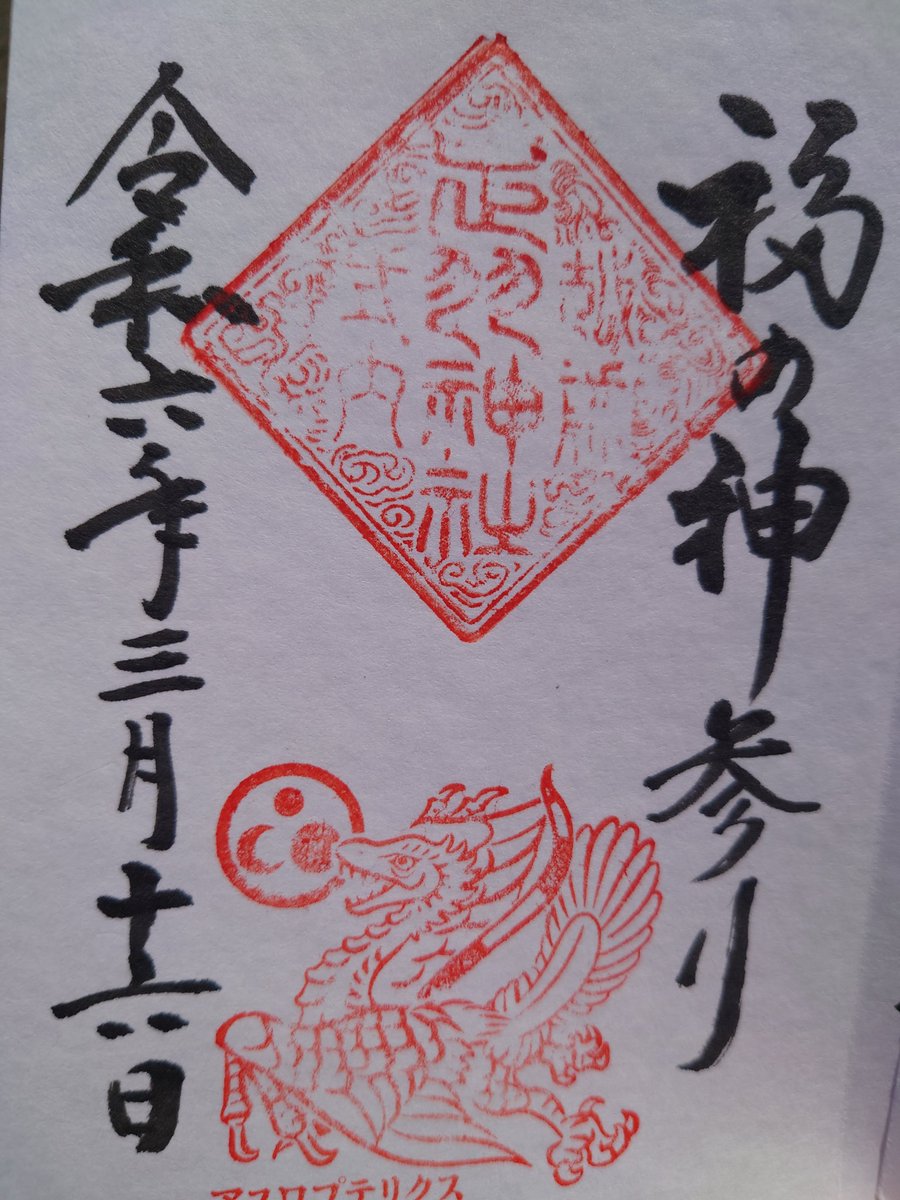 福の神参り
越前
足羽神社
式内
令和六年三月十六日
アスワプテリクス